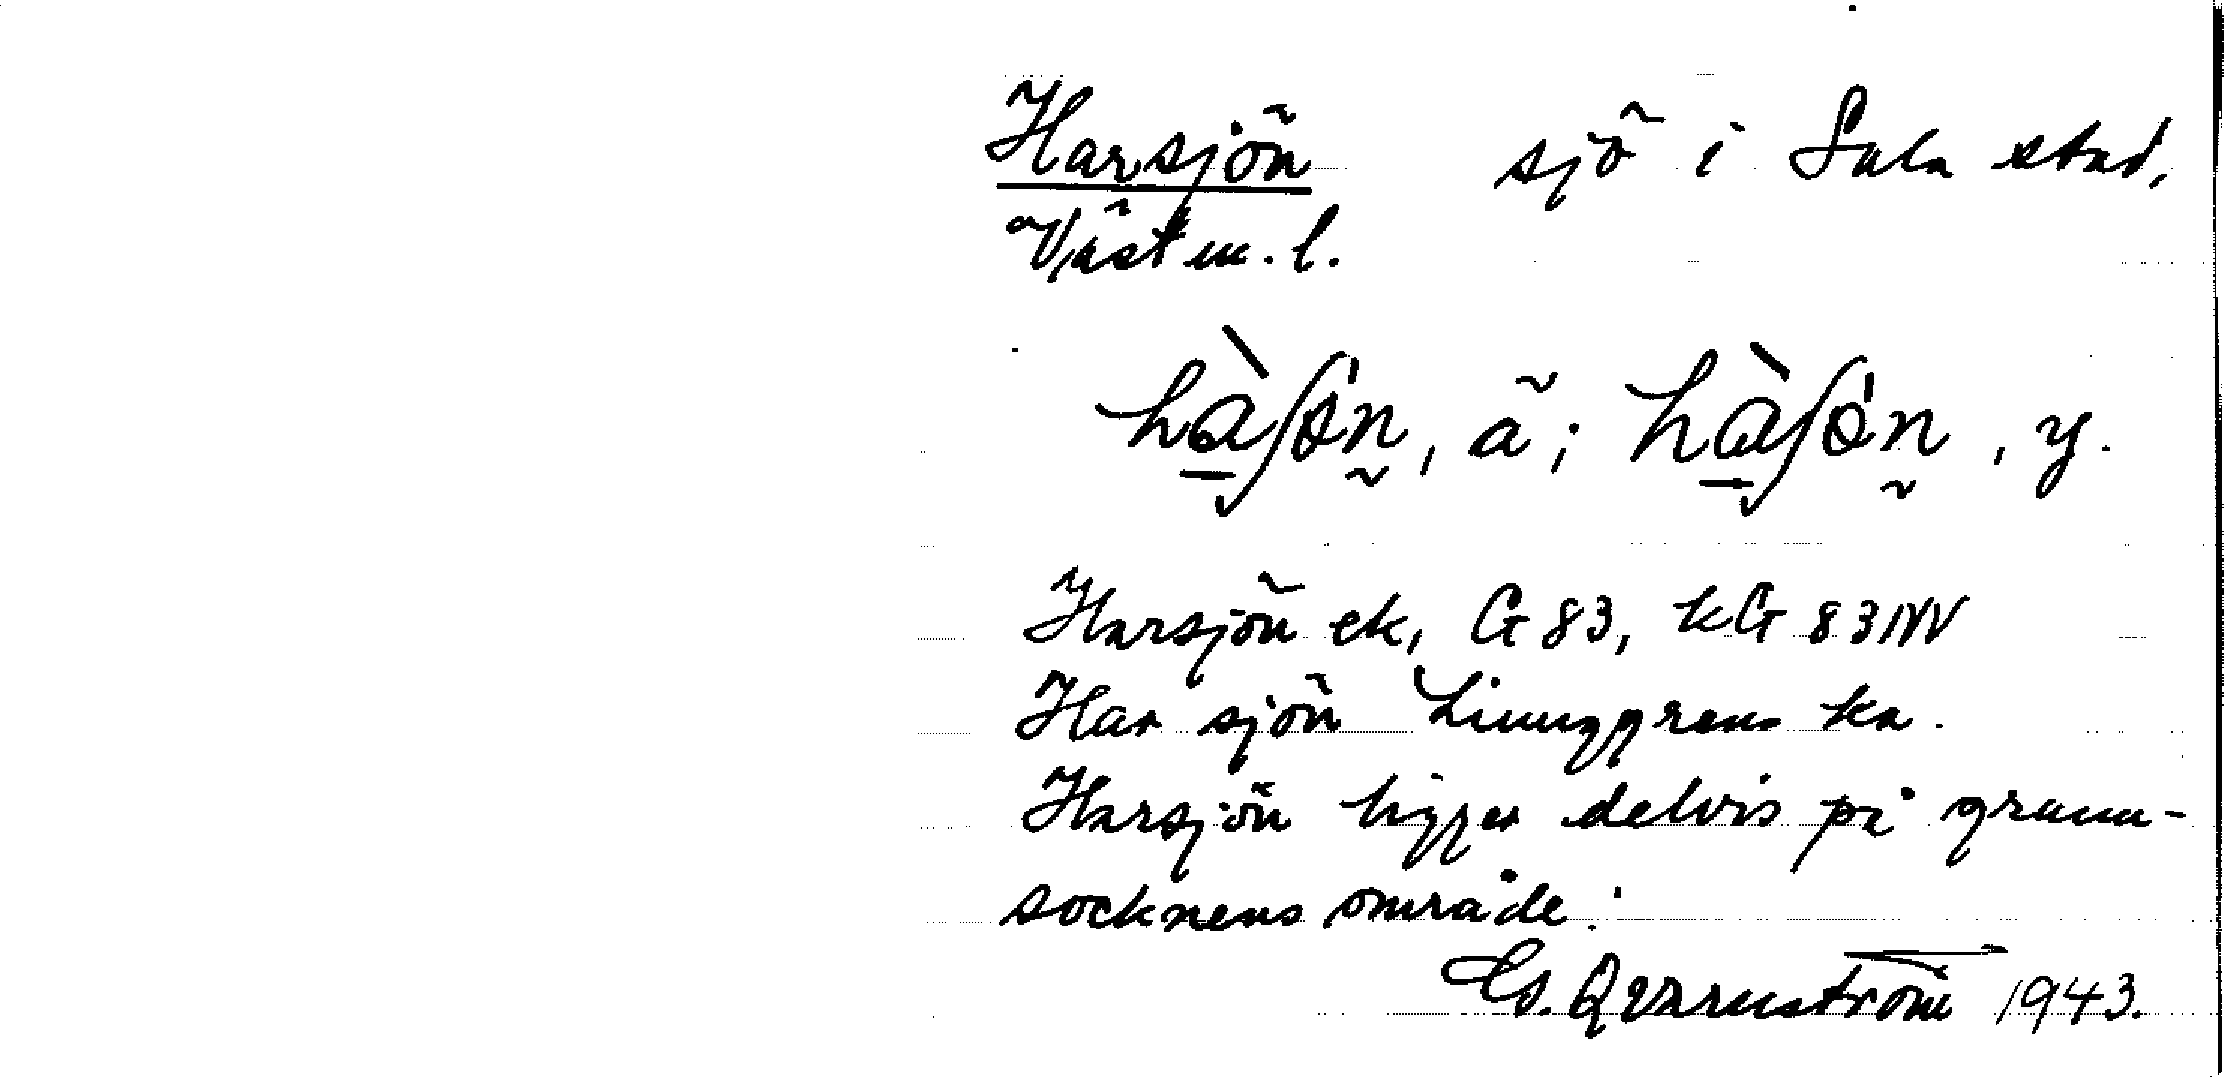 Harsjön sjö i Sala stad,
Västm. l.
hàʃón, ä; hàʃón, y.
Harsjön ek, G 83, kG 83NV
Har sjön Ljunggrens ka.
Harsjön ligger delvis på grann-
socknens område.
Es. Qvarnström 1943.